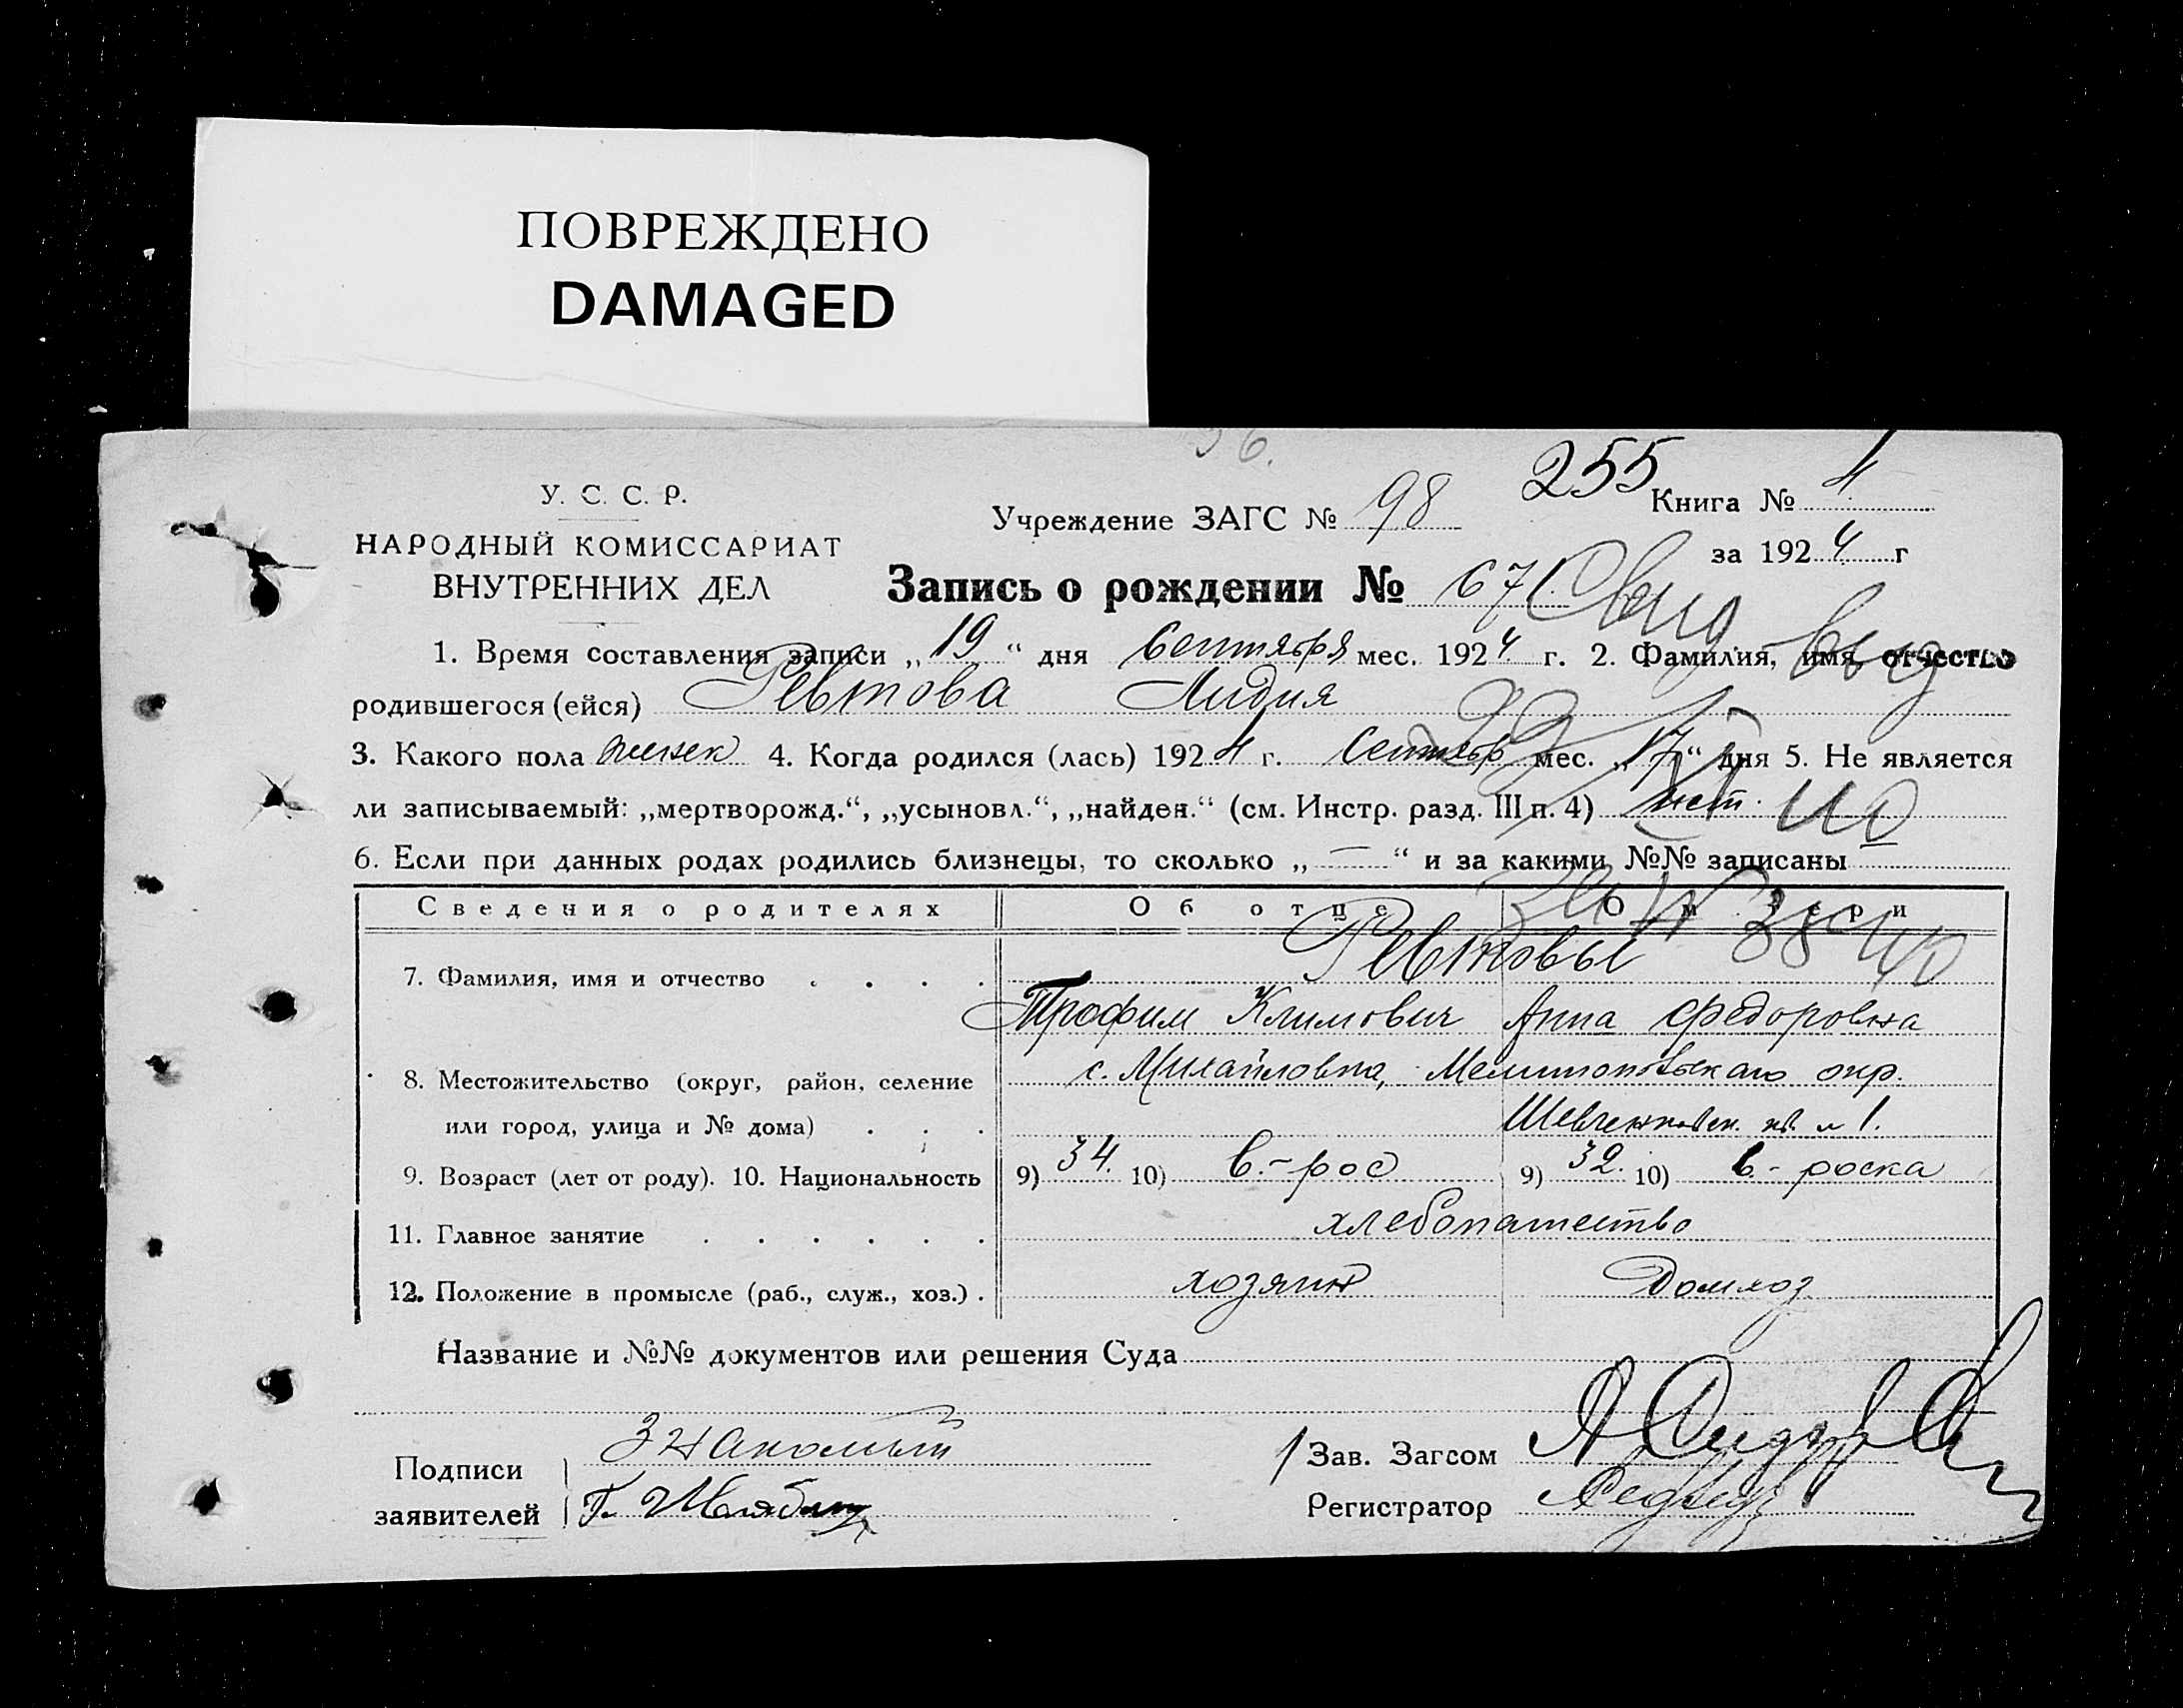 ПОВРЕЖДЕНО
DAMAGED
255
У. С. С. Р.
НАРОДНЫЙ КОМИССАРИАТ
ВНУТРЕННИХ ДЕЛ
Учреждение ЗАГС № 98
Книга № 4
за 1924 г
Запись о рождении № 67
1. Время составления записи „19“ дня Сентября мес. 1924 г. 2. Фамилия, имя, отчество
родившегося (ейся) Ревтова Лидия
3. Какого пола женск 4. Когда родился (лась) 1924 г. Сентябр мес. „17“ дня 5. Не является
ли записываемый: „мертворожд.“, „усыновл.“, „найден.“ (см. Инстр. разд. III п. 4) нет.
6. Если при данных родах родились близнецы, то сколько „—“ и за какими №№ записаны
Сведения о родителях Об отце О матери
Ревтовы
7. Фамилия, имя и отчество . . . .
Трофим Климович Анна Федоровна
8. Местожительство (округ, район, селение с. Михайловка, Мелитопольскаго окр.
или город, улица и № дома) . . . Шевченковск. 1.
9. Возраст (лет от роду). 10. Национальность 9) 34. 10) в.-рос 9) 32. 10) в.-роска
11. Главное занятие . . . . . . хлебопашество
12. Положение в промысле (раб., служ., хоз.) . хозяин Домхоз
Название и №№ документов или решения Суда
Подписи заявителей
Знакомый
Г.
Зав. Загсом
Регистратор